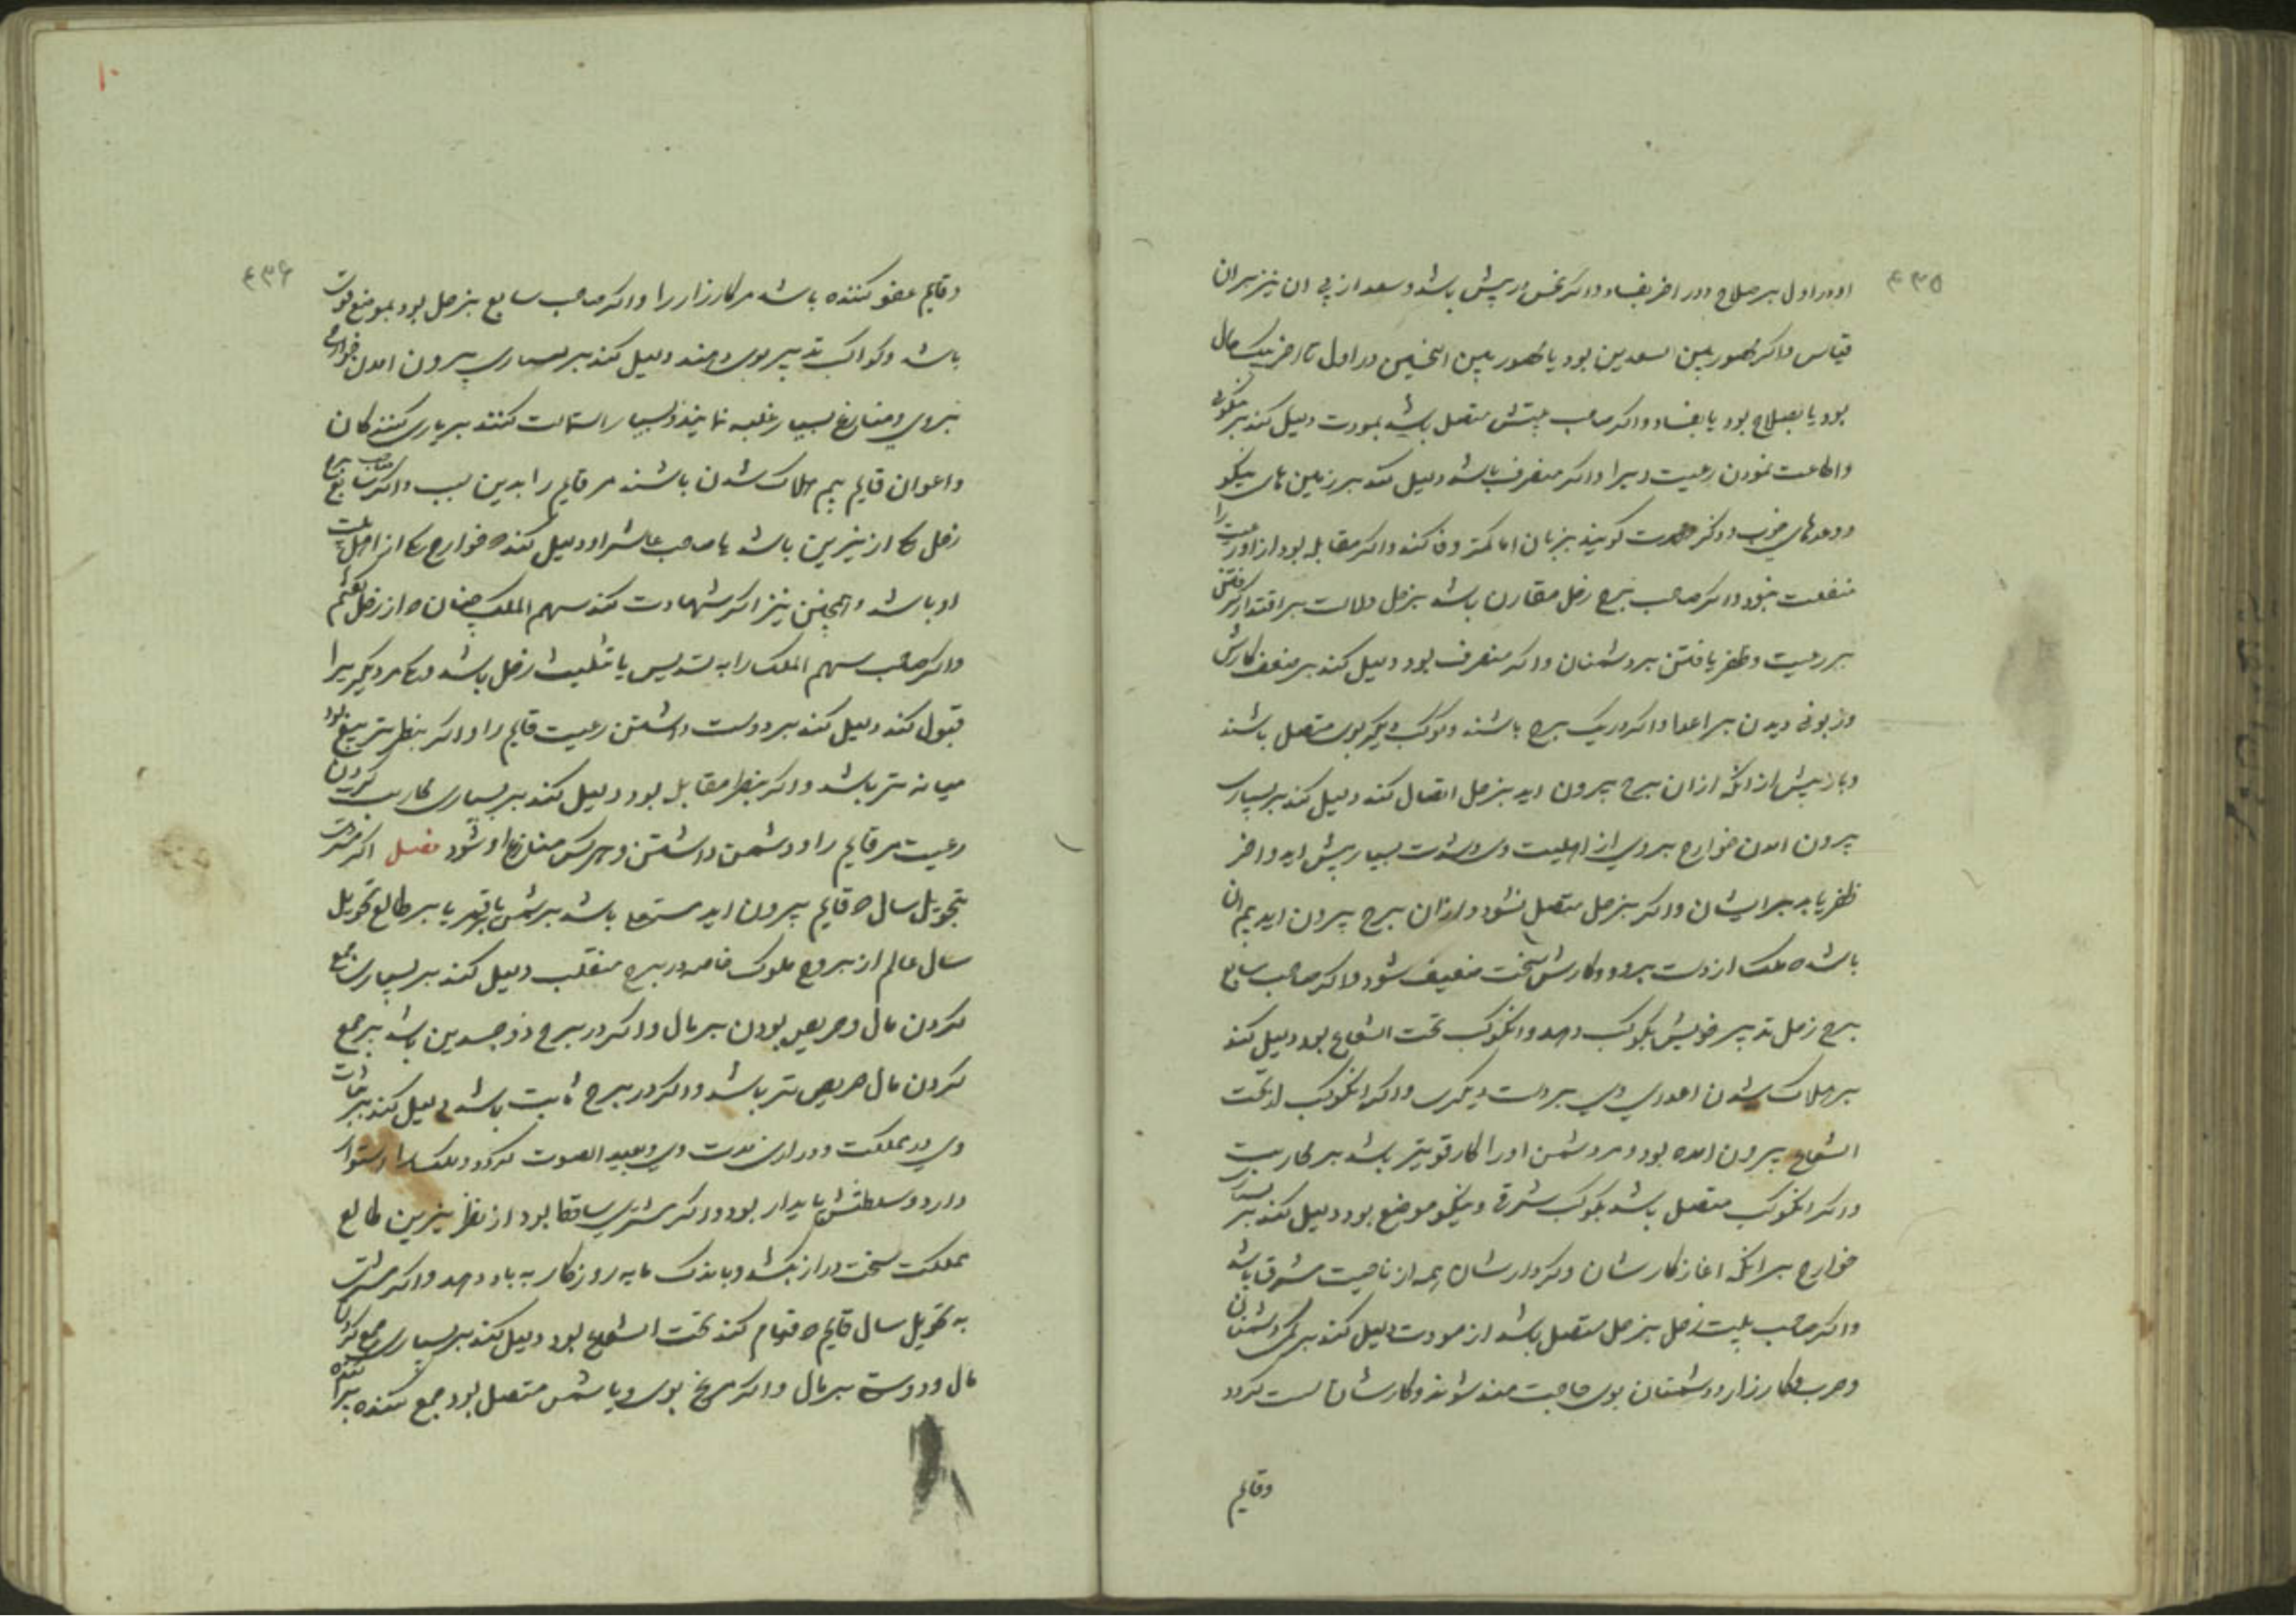 ٤٣٥
او در اول بر صلاح و در اخر بفساد و اگر نحس در پیش باشد و سعد از پی ان نیز بر ان
قیاس و اگر محصور بین السعدین بود یا محصور بین النحسین در اول تا اخر یک حال
بود یا بصلاح بود یا بفساد و اگر صاحب بیتش متصل باشد بمودت دلیل کند بر
واطاعت نمودن رعیت ویرا و اگر منصرف باشد دلیل کند بر زمین های نیکو
و وعدهای خوب و ذکر گویند بزبان اما کمتر وفا کنند و اگر مقابله بود از او رعیت را
منفعت نبود و اگر صاحب برج زحل مقارن باشد بزحل دلالت بر اقتدار گرفتن
بر رعیت و ظفر یافتن بر دشمنان و اگر منصرف بود دلیل کند بر ضعف کارش
و زبونی دیدن بر اعدا و اگر در یک برج باشند و کوکب دیگر بوی متصل باشند
و باز پیش از انکه ازان برج بیرون اید بزحل اتصال کند دلیل کند بر بسیاری
بیرون امدن خوارج بر وی از اهلبیت وی و شدت بسیار پیش اید و اخر
ظفر یابد بر ایشان و اگر بزحل متصل نشود و ازان برج بیرون اید بیم ان
باشد ه ملک از دست برود و کارش سخت ضعیف شود و اگر صاحب سابع
برج زحل تدبیر خویش بکوکب دهد و انکوکب تحت الشعاع بود دلیل کند
بر هلاک شدن اعدای وی بر دست دیگری و اگر انکوکب از تحت
الشعاع بیرون امده بود و مر دشمن او را کار قویتر باشد بر محاربت
و اگر انکوکب متصل باشد بکوکب شرقی و نیکو موضع بود دلیل کند بر بسیاری
خوارج بر انکه اغاز کارشان و کردارشان همه از ناحیت مشرق باشد
و اگر صاحب بیت زحل بزحل متصل باشد از مودت دلیل کند بر دشمنان
و حرب و کارزار و دشمنان بوی حاجت مند شوند و کارشان سست گردد
وقایم
٤٣٦
وقایم عفو کننده باشد مر کارزار را و اگر صاحب سابع بزحل بود بموضع قوت
باشد و کواکب تدبیر بوی دهند دلیل کند بر بسیاری بیرون امدن خوارج
بروی و منازع بسیار غلبه نمایند و بسیار استمالت کنند بر یاری کنندگان
و اعوان قایم بیم هلاک شدن باشند مر قایم را بدین سبب و اگر صاحب سابع برج
زحل یکی از نیرین باشد یا صاحب عاشر او دلیل کند ه خوارج یکی از اهل بیت
او باشد و همچنین نیز اگر شهادت کند سهم الملک چنان ه از زحل گفتیم
و اگر صاحب سهم الملک را به تسدیس یا تثلیث زحل باشد و یکدیگر را
قبول کند دلیل کند بر دوست داشتن رعیت قایم را و اگر بنظر تربیع بود
میانه تر باشد و اگر بنظر مقابل بود دلیل کند بر بسیاری محاربت کردن
رعیت مر قایم را و دشمن داشتن و هرکس منازع او شود فصل اگر مشتری
بتحویل سال ه قایم بیرون اید مستعلی باشد بر شمس یا قمر یا بر طالع تحویل
سال عالم از بروج ملوک خاصه در برج منقلب دلیل کند بر بسیاری جمع
کردن مال و حریص بودن بر مال و اگر در برج ذوجسدین باشد بر جمع
کردن مال حریص تر باشد و اگر در برج ثابت باشد دلیل کند بر ثبات
وی در مملکت و درازی مدت وی و بعید الصوت گردد و ملک را استوار
دارد و سلطنتش پایدار بود و اگر مشتری ساقط بود از نظر نیرین طالع
مملکت سخت دراز نکشد و باندک مایه روزگار به باد دهد و اگر مشتری
به تحویل سال قایم ه قیام کند تحت الشعاع بود دلیل کند بر بسیاری جمع کردن
مال و دوستی بر مال و اگر مریخ بوی و یا شمس متصل بود جمع کننده